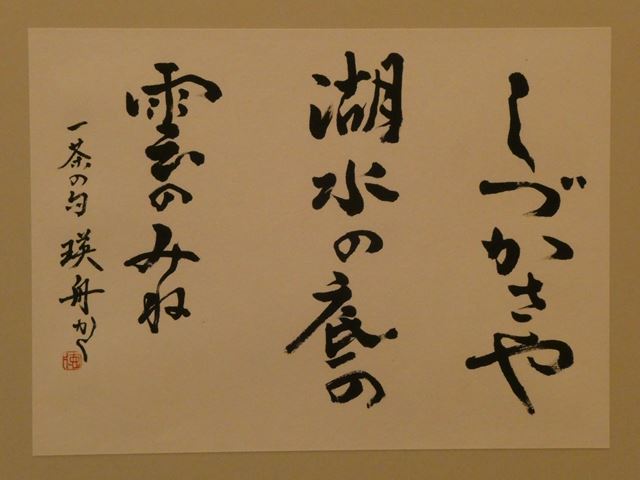 しづかさや
湖水の底の
雲のみね
一茶の句 瑛舟かく